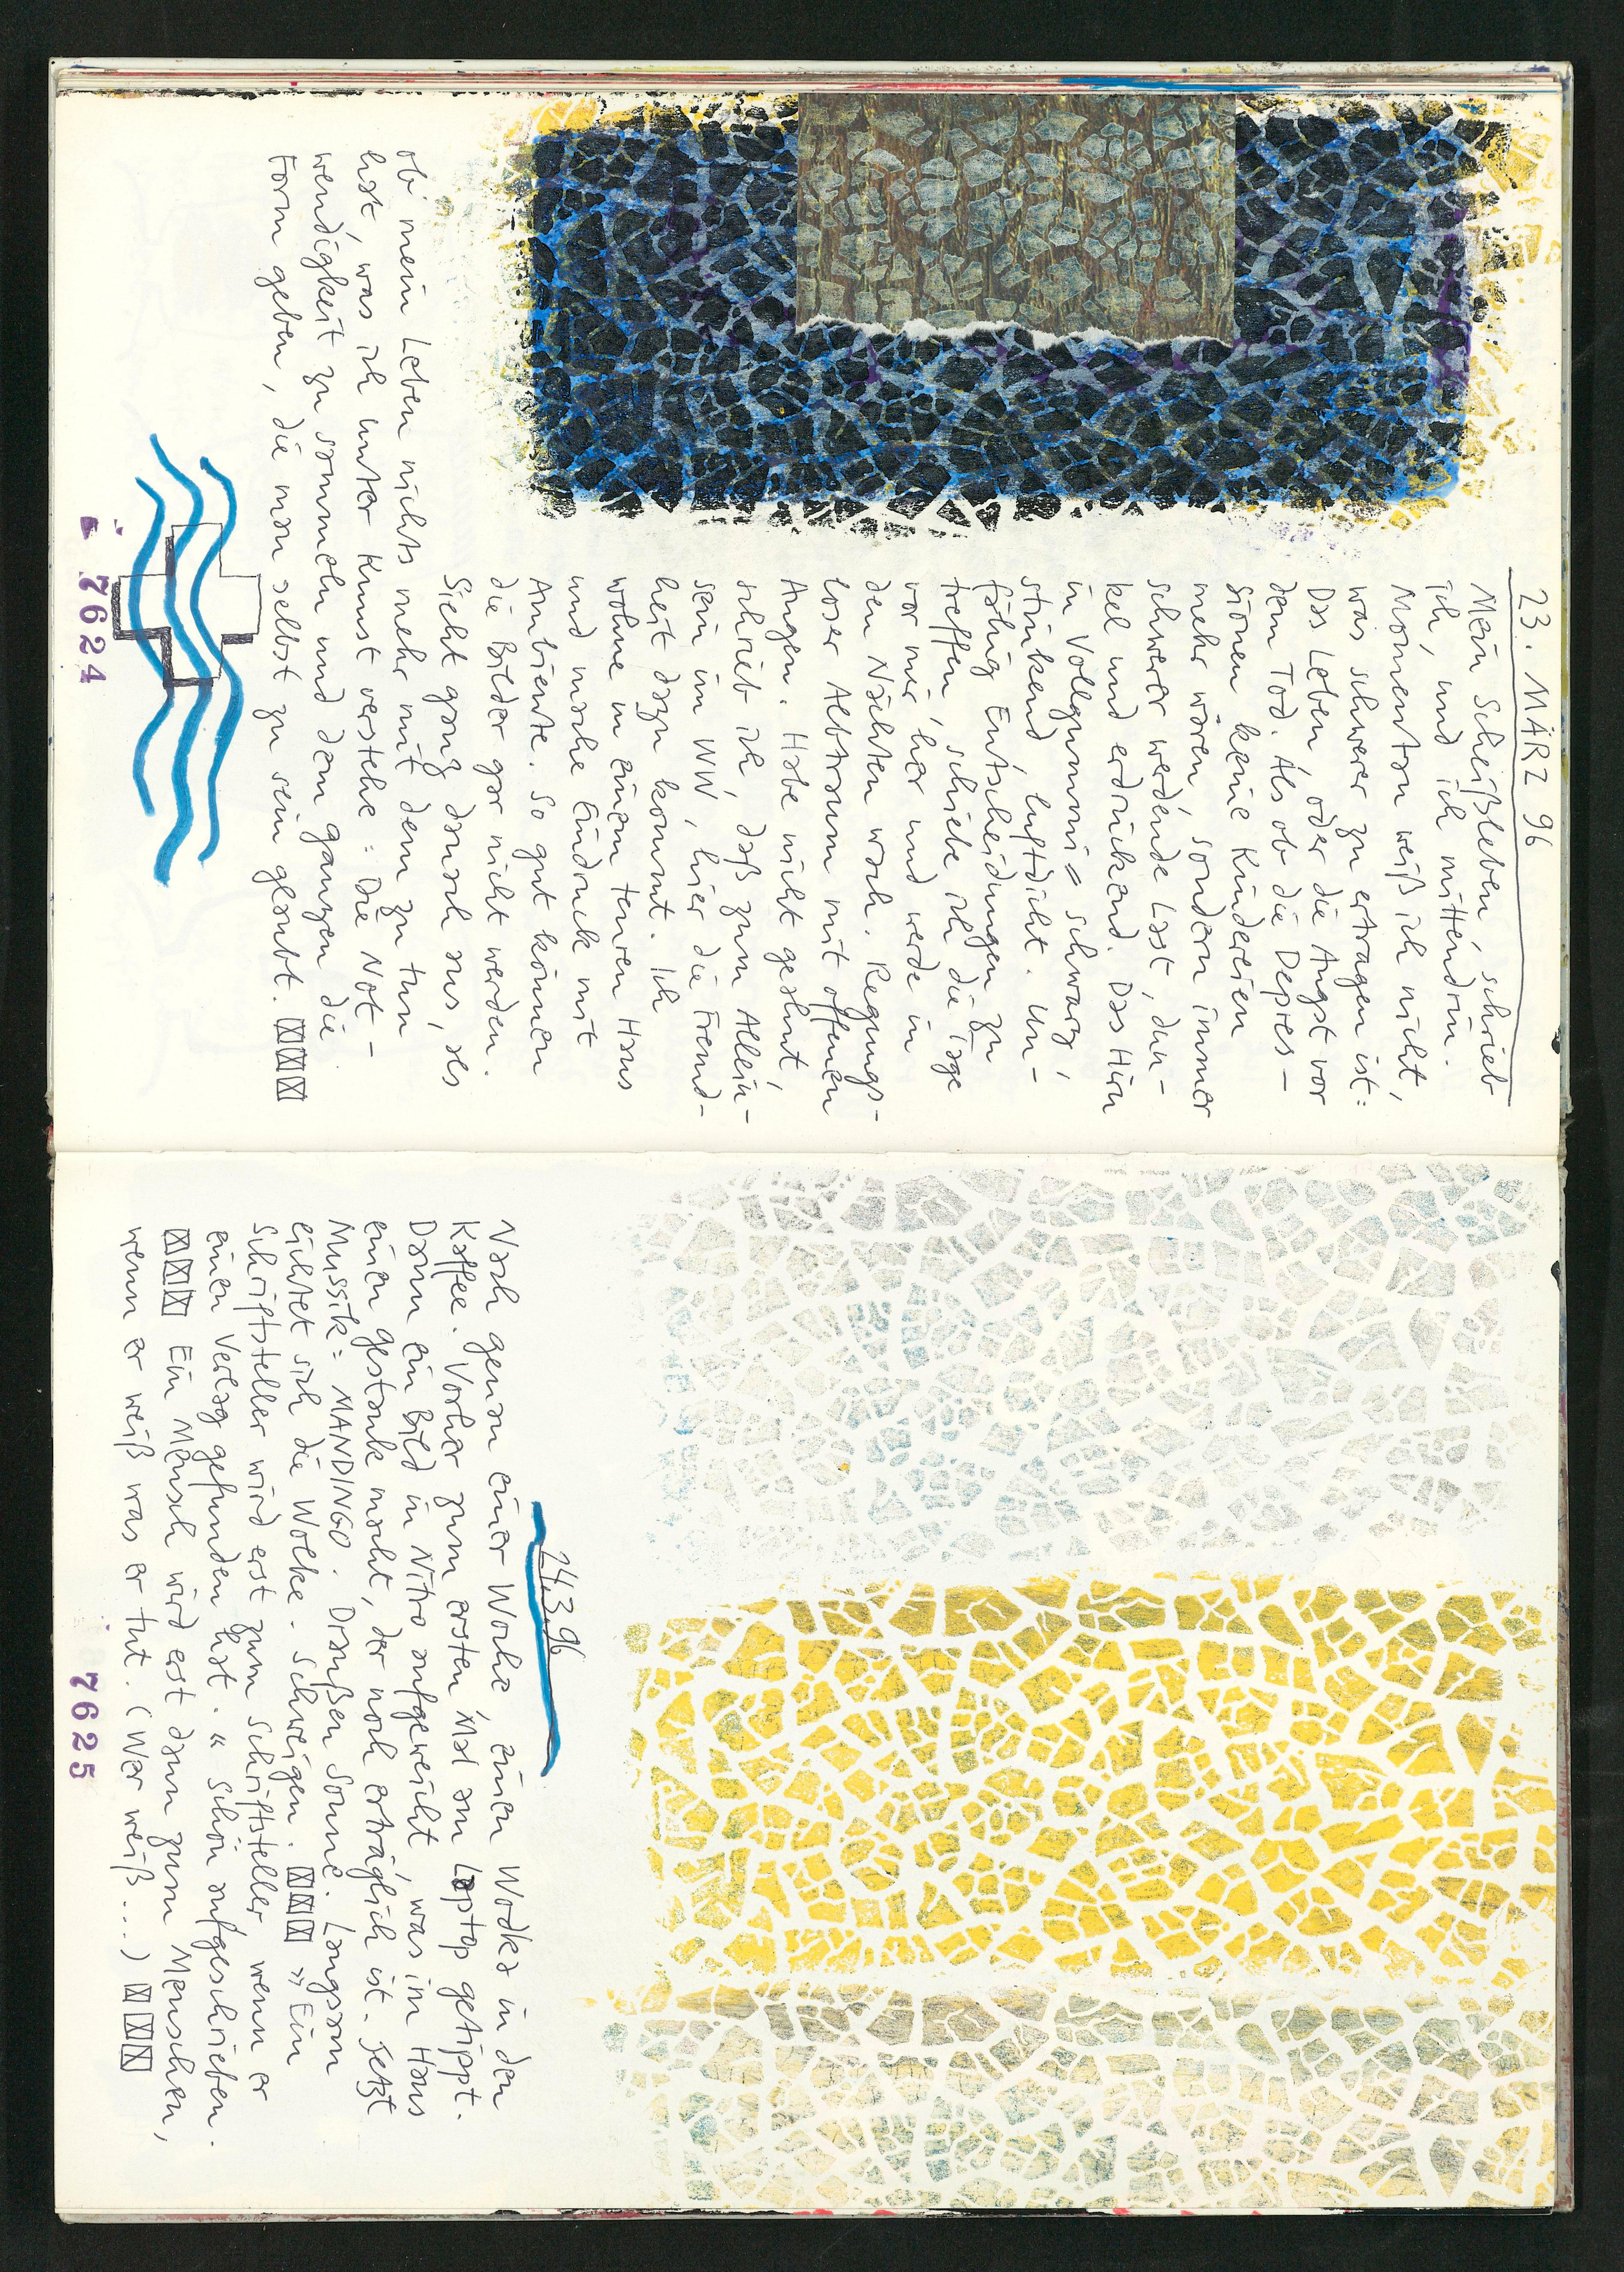 23. MÄRZ 96
Mein Scheißleben, schrieb
ich, und ich mittendrin.
Momentan weiß ich nicht,
was schwerer zu ertragen ist:
Das Leben, oder die Angst vor
dem Tod. Als ob die Depres-
sionen keine Kindereien
mehr wären, sondern immer
schwerer werdende Last, dun-
kel und erdrückend. Das Hirn
in Vollgummi = schwarz,
stinkend, luftdicht. Un-
fähig Entscheidungen zu
treffen, schiebe ich die Tage
vor mir her und werde in
den Nächten wach. Regungs-
loser Albtraum mit offenen
Augen. Habe nicht geahnt,
schrieb ich, daß zum Allein-
sein im WW, hier die Fremd-
heit dazu kommt. Ich
wohne in einem teuren Haus
und mache Eindruck mit
Ambiente. So gut können
die Bilder gar nicht werden.
Sieht ganz danach aus, als
ob mein Leben nichts mehr mit dem zu tun
hat, was ich unter Kunst verstehe: Die Not-
wendigkeit zu sammeln und dem ganzen die
Form geben, die man selbst zu sein glaubt.
7624
24.3.96
Nach genau einer Woche, einen Wodka in den
Kaffee. Vorher zum ersten Mal am Laptop getippt.
Dann ein Bild in Nitro aufgeweicht, was im Haus
einen Gestank macht, der noch erträglich ist. Jetzt
Mussik: MANDINGO. Draußen Sonne. Langsam
lichtet sich die Wolke. Schweigen. »Ein
Schriftsteller wird erst zum Schriftsteller wenn er
einen Verlag gefunden hat.« Schön aufgeschrieben.
Ein Mensch wird erst dann zum Menschen,
wenn er weiß was er tut. (Wer weiß....)
7625